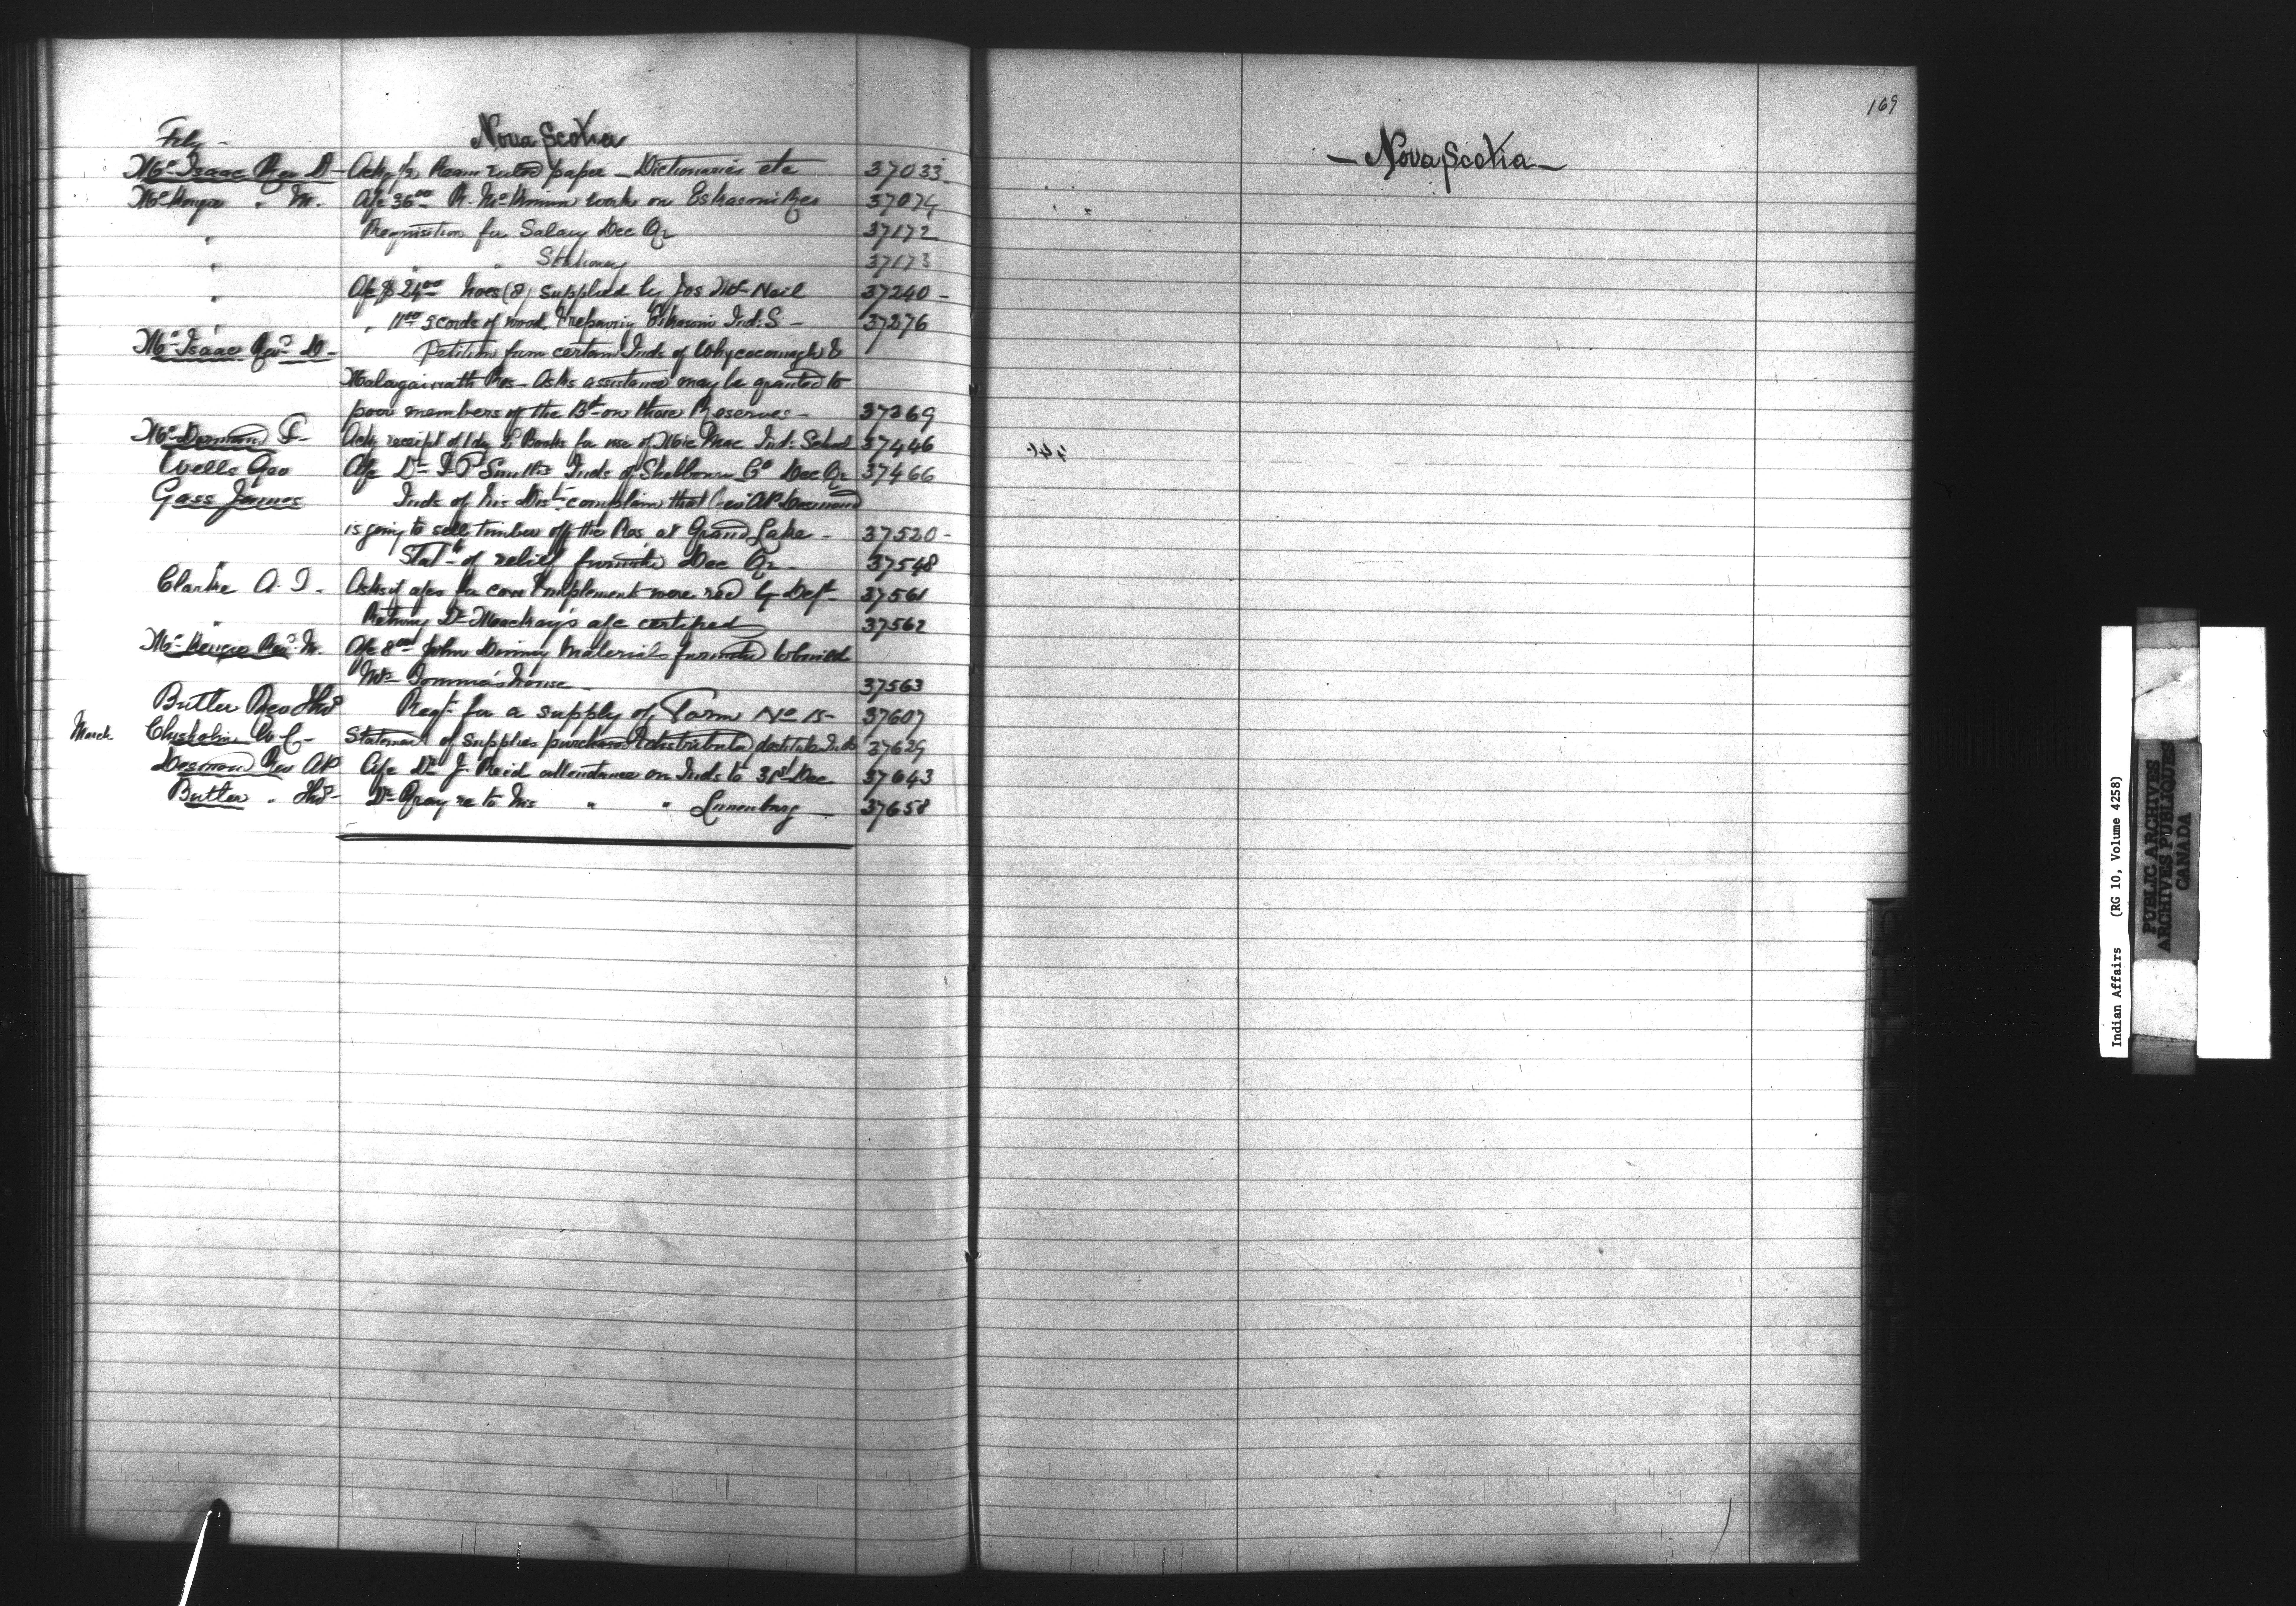 Nova Scotia
Feby -
Mc Isaac Rev D - Ackg ½ Ream ruled paper - Dictionaries etc 37033
Mc Kenzie " M. A/c 36 00 R. McKinnon work on Eskasoni Res 37074
" Requisition for Salary Dec Qr 37172
" " " Stationery 37173
" A/c $ 24 00 hoes (8) supplied by Jos McNeil 37240 -
" " 11 00 5 cords of wood & repairing Eskasoni Ind: S - 37276
Mc Isaac Revd D - Petition from certain Inds of Whycocomagh &
Malagawatch Res - Asks assistance may be granted to
poor members of the Bd on those Reserves - 37369
Mc Dormand F - Ackg receipt of Books for use of Mic Mac Ind: School 37446
Wells Geo A/c Dr Smith's Inds of Shelbourne Co Dec Qr 37466
Gass James Inds of his Dist complain that Rev AP Desmond
is going to sell timber off the Res. at Grand Lake - 37520 -
" Statt of relief furnished Dec Qr - 37548
Clarke A. I - Asks if a/cs for corn & implements were recd by Dept - 37561
" Returns Dr Mackay's a/c certified 37562
Mc Kenzie Revd M. A/c 8 00 John materials furnished to build
Mrs house - 37563
Butler Rev Thos Reqt for a supply of Form No 15 - 37607
March Chisholm W C - Statement of Supplies purchased & distributed destitute Inds 37629
Desmond Rev AP A/c Dr J. Reid attendance on Inds to 31st Dec 37643
Butler " Thos - Dr Gray re to his " " Lunenburg - 37658
169
- Nova Scotia -
Indian Affairs (RG 10, Volume 4258)
PUBLIC ARCHIVES
ARCHIVES PUBLIQUES
CANADA